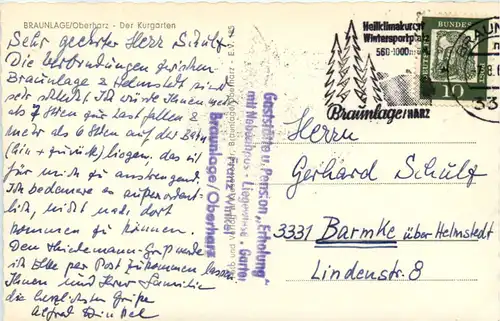 BRAUNLAGE/Oberharz - Der Kurgarten
Sehr geehrter Herr Schulz
Die Verbindungen zwischen
Braunlage u Helmstedt sind
sehr schlecht. Ich würde Ihnen gern
als Gästen zur Last fallen
mehr als 6 Std auf der Bahn
(hin + zurück) liegen, das ist
für mich zu anstrengend.
Ich bedauere es außerordent-
lich, nicht nach dort
kommen zu können.
Den Gruß werde
ich Elke per Post zukommen lassen
Ihnen und Ihrer Familie
die herzlichsten Grüße
Alfred
Gaststätte u. Pension „Erholung"
mit Nebenhaus - Liegewiese - Garten
Braunlage/Oberharz
Heilklimakurort
Wintersportplatz
560-1000m
Braunlage/HARZ
BRAUN
33
DEUTSCHE BUNDESPOST
10
Herrn
Gerhard Schulz
3331 Barmke über Helmstedt
Lindenstr. 8